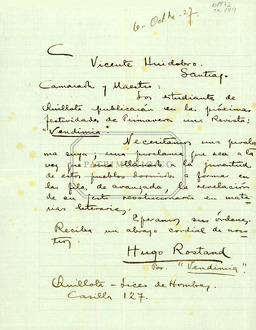 6-Octbre-27.
C
Vicente Huidobro.
Santiago
Camarada y Maestro:
Los estudiantes de
Quillota publicarán en las próximas
festividades de Primavera una Revista:
"Vendimia"
Necesitamos una procla
ma suya; una proclama que sea a la
vez que una a la juventud
de estos pueblos dormidos a formar en
las filas de avanzada, la revelación
de un revolucionario en mate
rias literarias.
Esperamos sus órdenes.
Reciba un abrazo cordial de noso
tros.
Hugo Rostand
Por "Vendimia"
Quillota - Liceo de Hombres
Casilla 127.